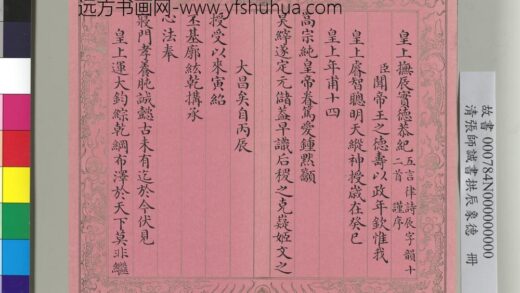 远方书画网-www.yfshuhua.com
皇上撫辰贊德恭紀五言律詩辰字韻十二首 謹序
臣聞帝王之德壽以政年欽惟我
皇上睿智聰明天縱神授歲在癸巳
皇上年甫十四
高宗純皇帝眷篤愛鍾黙顲
昊縡遂定元儲蓋早識后稷之克嶷姬文之
大昌矣自丙辰
授受以來寅紹
丕基廓絃乾搆承
心法奉
寢門孝養肫誠懿古未有迄於今伏見
皇上運大鈞綜乾綱布澤於天下莫非繼
故書 000784N000000000
清張師誠書拱辰象德 冊